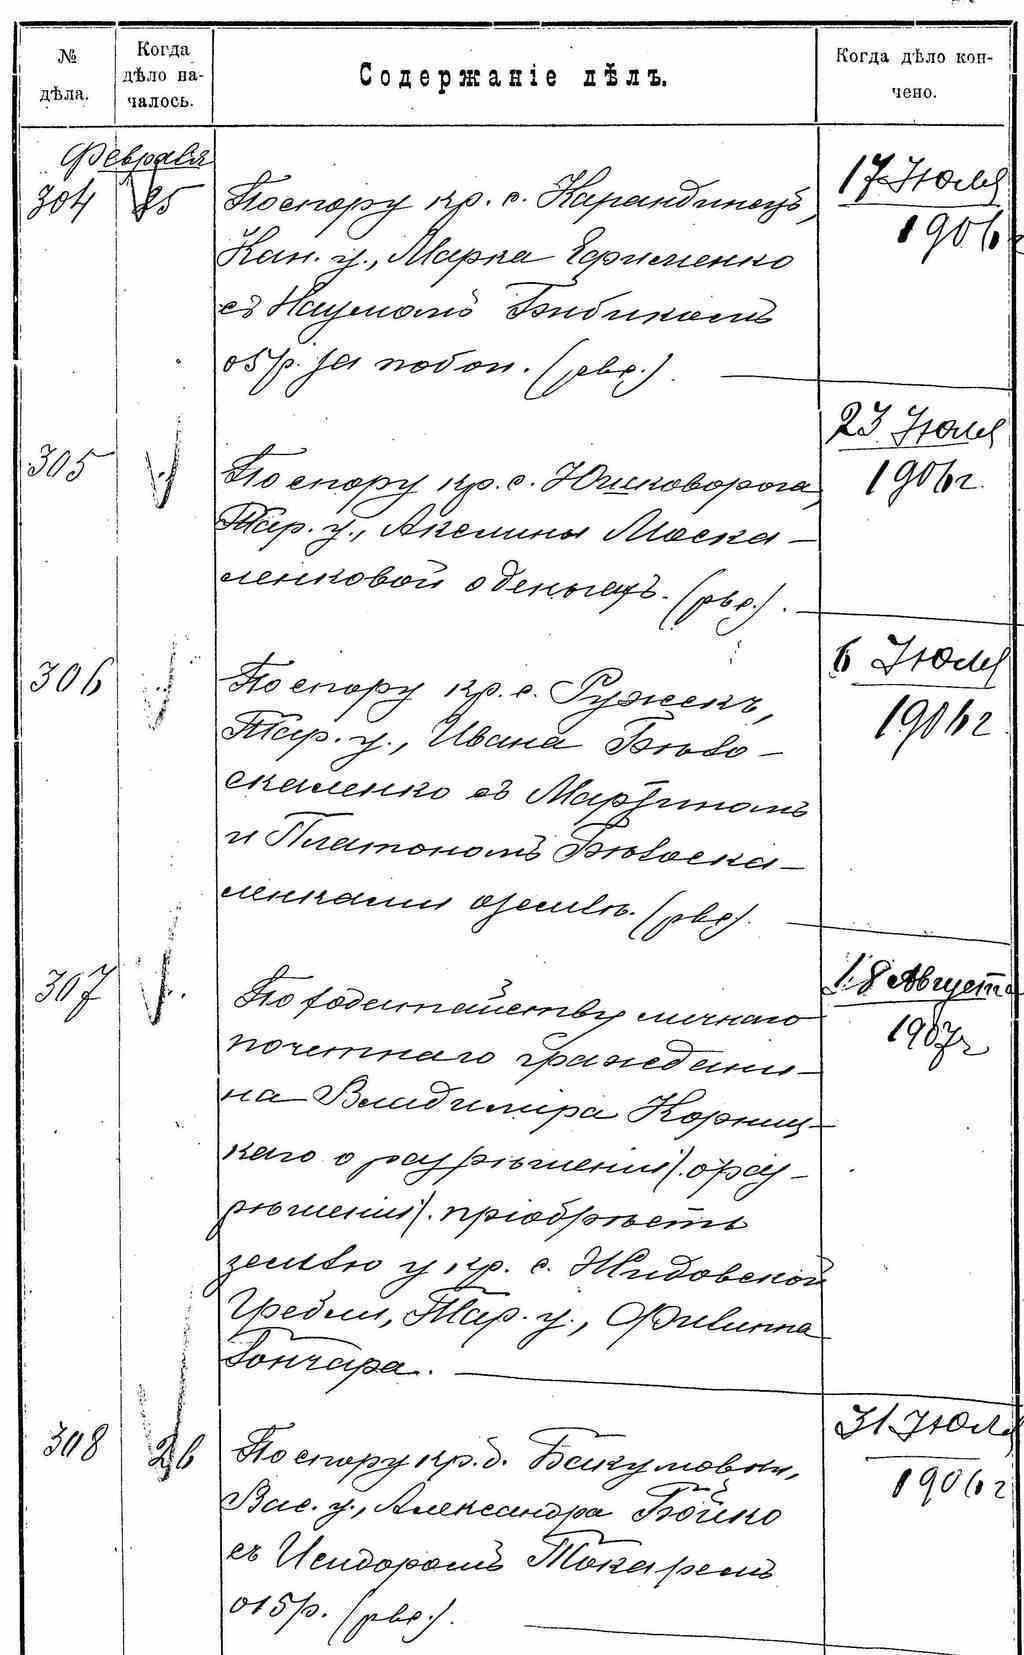 № дѣла.
Когда дѣло началось.
Содержаніе дѣлъ.
Когда дѣло кончено.
Февраля
304
25
По спору кр. с. Карандинецъ,
Кан. у., Марка Ефименко
съ Наумомъ Бибикомъ
о 5 р. за побои. (рвс.).
17 Июля
1906 г.
305
По спору кр. с. Юшковорога,
Тар. у., Акелины Моска-
ленковой о деньгахъ. (рвс.).
23 Июля
1906 г.
306
По спору кр. с. Ружекъ,
Тар. у., Ивана Бѣло-
скаленко съ Мартиномъ
и Платономъ Бѣлоска-
ленками о землѣ. (рвс).
6 Июля
1906 г.
307
По ходатайству личнаго
почетнаго граждани-
на Владиміра Корниц-
каго о разрѣшеніи/. о раз-
рѣшеніи/. пріобрѣсть
землю у кр. с. Жидовской
Гребли, Тар. у., Филиппа
Гончара.
18 Августа
1907 г.
308
26
По спору кр. д. Бакумовки,
Вас. у., Александра Бойко
съ Исидоромъ Токаремъ
о 15 р. (рвс.).
31 Июля
1906 г.